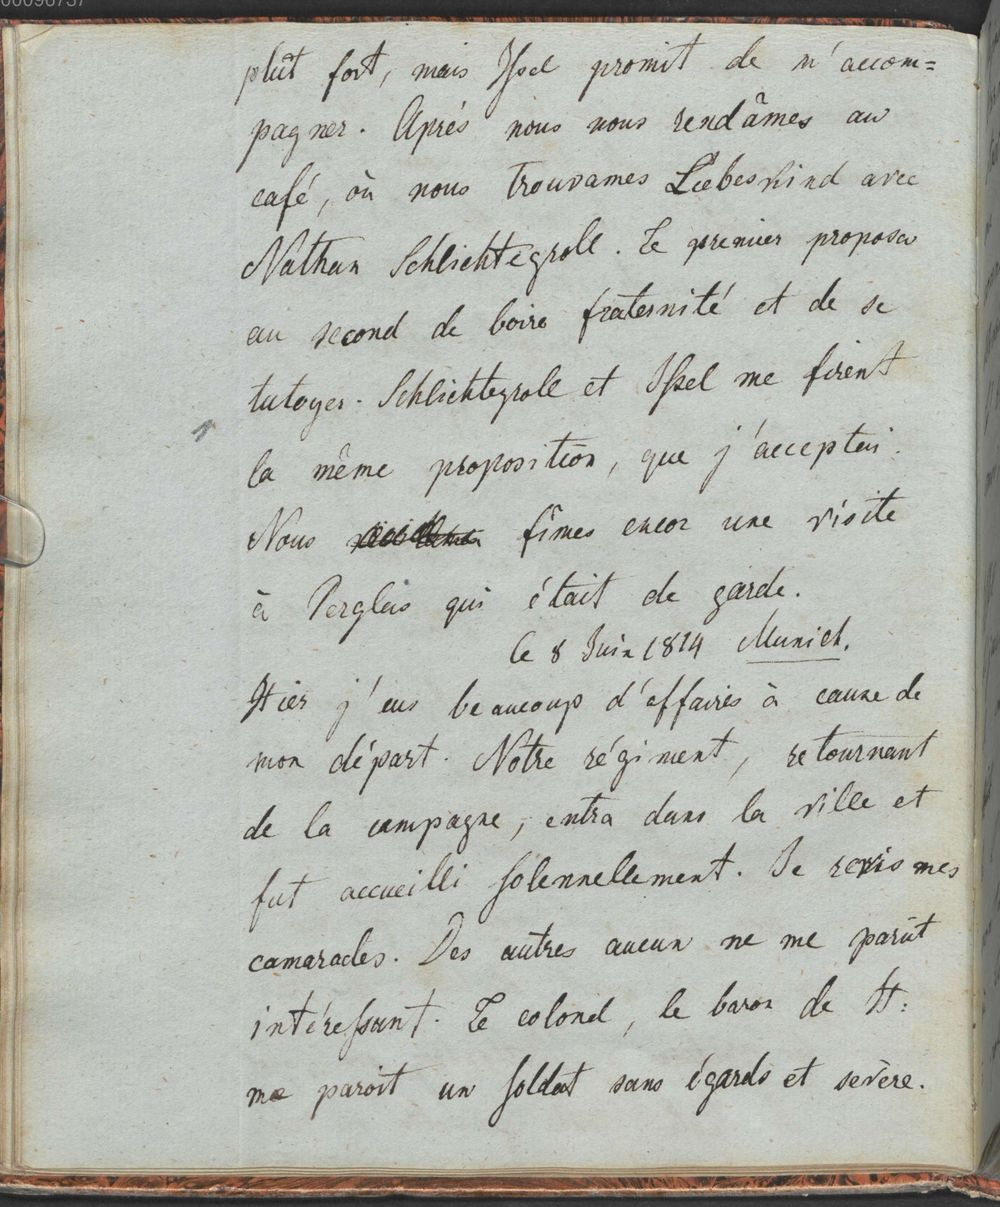 00096737
plût fort, mais Issel promit de m'accom=
pagner. Après nous nous rendâmes au
café, où nous trouvames Liebeskind avec
Nathan Schlichtegroll. Le premier proposa
au second de boire fraternité et de se
tutoyer. Schlichtegroll et Issel me firent
la même proposition, que j'acceptai.
Nous fîmes encor une visite
à Perglas qui était de garde.
le 8 Juin 1814 Munich.
Hier j'eus beaucoup d'affaires à cause de
mon départ. Notre régiment, retournant
de la campagne, entra dans la ville et
fut accueilli solennellement. Je revis mes
camarades. Des autres aucun ne me parût
intéressant. Le colonel, le baron de H:
me paroit un soldat sans égards et sevère.